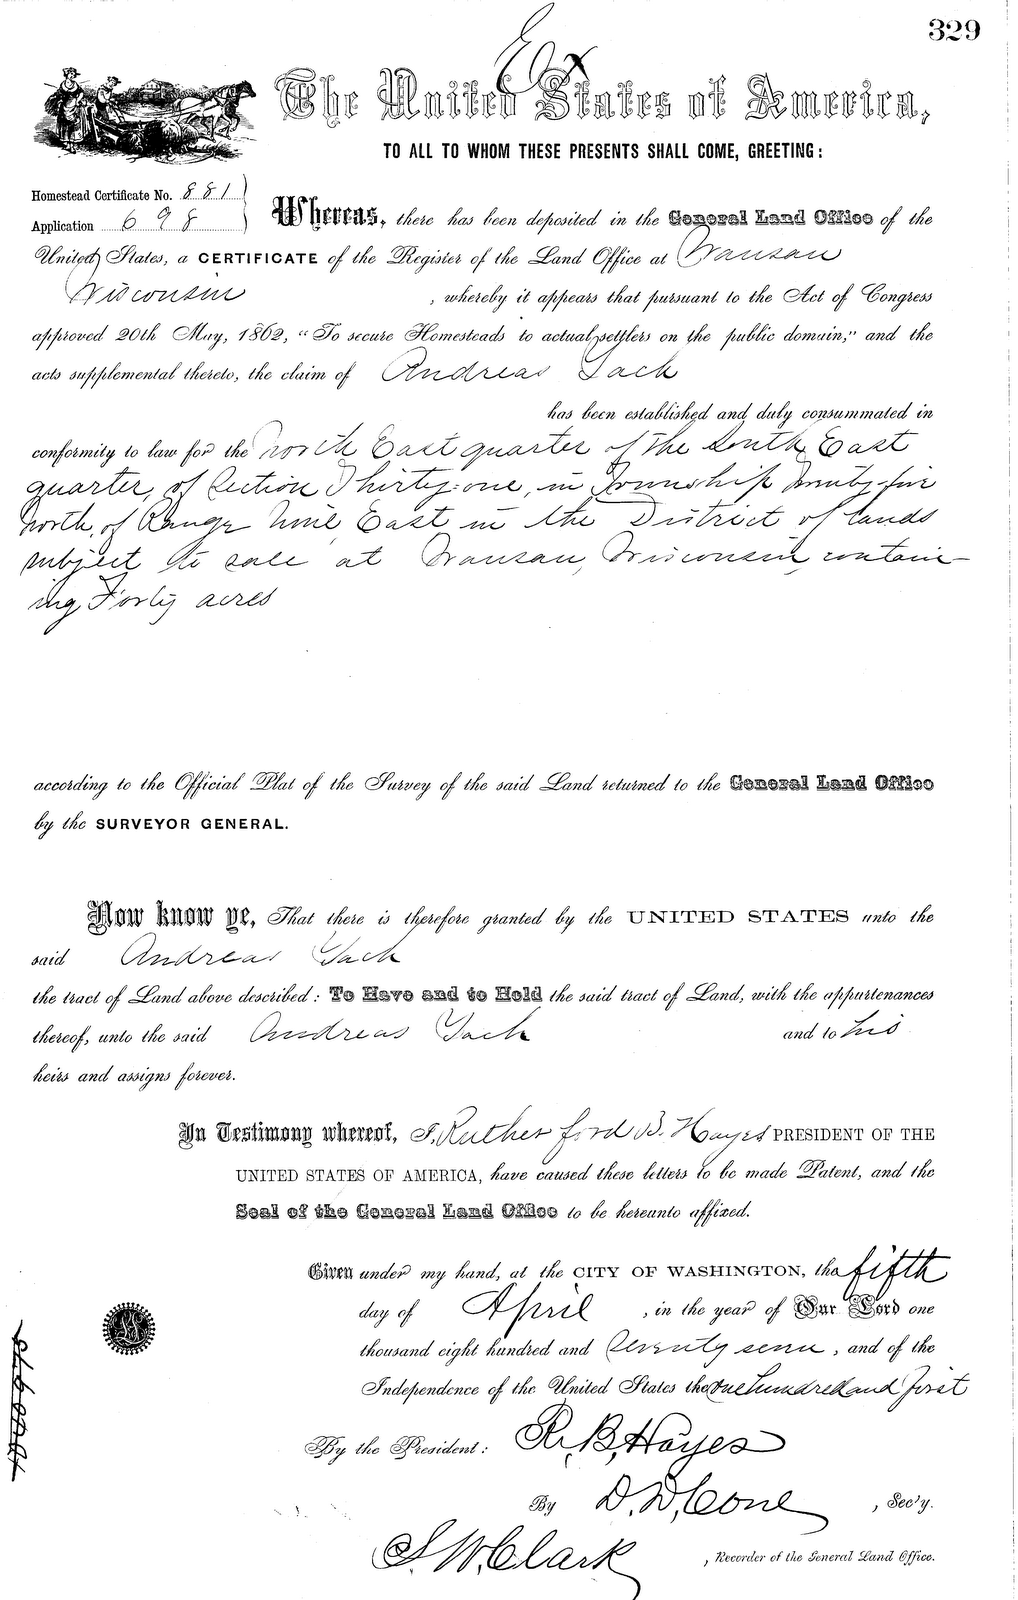 329
Ex
The United States of America,
TO ALL TO WHOM THESE PRESENTS SHALL COME, GREETING:
Homestead Certificate No. 881
Application 698
Whereas, there has been deposited in the General Land Office of the
United States, a CERTIFICATE of the Register of the Land Office at Wausau
Wisconsin, whereby it appears that pursuant to the Act of Congress
approved 20th May, 1862, "To secure Homesteads to actual settlers on the public domain," and the
acts supplemental thereto, the claim of Andreas Jach
has been established and duly consummated in
conformity to law for the North East quarter of the South East
quarter, of Section Thirty-one, in Township
North, of Range Nine East in the District of lands
subject to sale at Wausau, Wisconsin, contain-
ing Forty acres
according to the Official Plat of the Survey of the said Land returned to the General Land Office
by the SURVEYOR GENERAL.
Now know ye, That there is therefore granted by the UNITED STATES unto the
said Andreas Jach
the tract of Land above described: To Have and to Hold the said tract of Land, with the appurtenances
thereof, unto the said Andreas Jach and to his
heirs and assigns forever.
In Testimony whereof, I, Rutherford B. Hayes PRESIDENT OF THE
UNITED STATES OF AMERICA, have caused these letters to be made Patent, and the
Seal of the General Land Office to be hereunto affixed.
Given under my hand, at the CITY OF WASHINGTON, the fifth
day of April, in the year of Our Lord one
thousand eight hundred and Seventy seven, and of the
Independence of the United States the one hundred and first
By the President: R. B. Hayes
By D. D. Cone, Sec'y.
S. W. Clark, Recorder of the General Land Office.